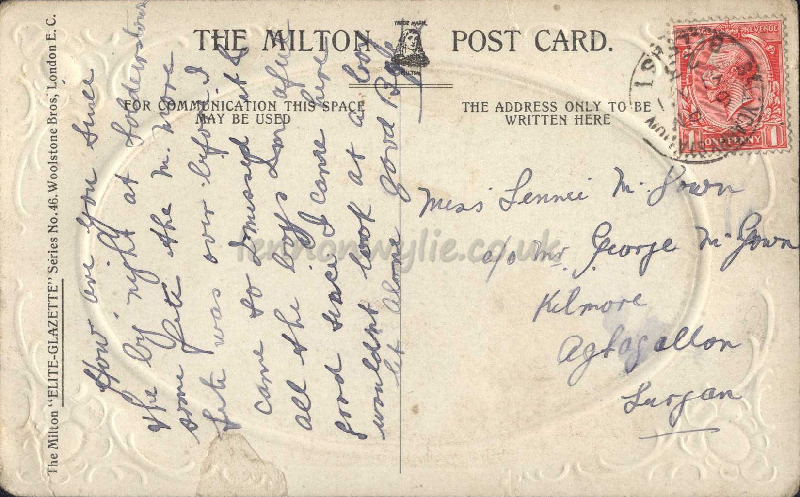 THE MILTON POST CARD.
TRADE MARK
MILTON
FOR COMMUNICATION THIS SPACE
MAY BE USED
THE ADDRESS ONLY TO BE
WRITTEN HERE
The Milton "ELITE-GLAZETTE" Series No. 46. Woolstone Bros, London E. C.
How are you since
the big night at
some fete the M. More
fete was over before I
came so I missed it &
all the boys I am afu
good since I came here
wouldnt look at a boy
let alone good Bye
Miss Lennie McGown
c/o Mr George McGown
Kilmore
Aghagallon
Lurgan
ONE PENNY
lennonwylie.co.uk